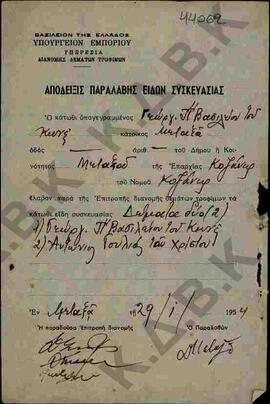 44062
ΒΑΣΙΛΕΙΟΝ ΤΗΣ ΕΛΛΑΔΟΣ
ΥΠΟΥΡΓΕΙΟΝ ΕΜΠΟΡΙΟΥ
ΥΠΗΡΕΣΙΑ
ΔΙΑΝΟΜΗΣ ΔΕΜΑΤΩΝ ΤΡΟΦΙΜΩΝ
ΑΠΟΔΕΙΞΙΣ ΠΑΡΑΛΑΒΗΣ ΕΙΔΩΝ ΣΥΣΚΕΥΑΣΙΑΣ
Ὁ κάτωθι ὑπογεγραμμένος Γεώργ. Π. Βασιλείου τοῦ
Κων. κάτοικος Μεταξᾶ
ὁδὸς — ἀριθ. — τοῦ Δήμου ἢ Κοι-
νότητος Μεταξᾶ τῆς Ἐπαρχίας Κοζάνης
τοῦ Νομοῦ Κοζάνης
ἔλαβον παρὰ τῆς Ἐπιτροπῆς διανομῆς δεμάτων τροφίμων τὰ
κάτωθι εἴδη συσκευασίας
1) Γεώργ. Π. Βασιλείου τοῦ Κων.
2) Ἀντώνιος τοῦ Χρίστου
Ἐν Μεταξᾷ τῇ 29/1/ 1954
Ἡ παραδοῦσα Ἐπιτροπὴ διανομῆς Ὁ Παραλαβὼν